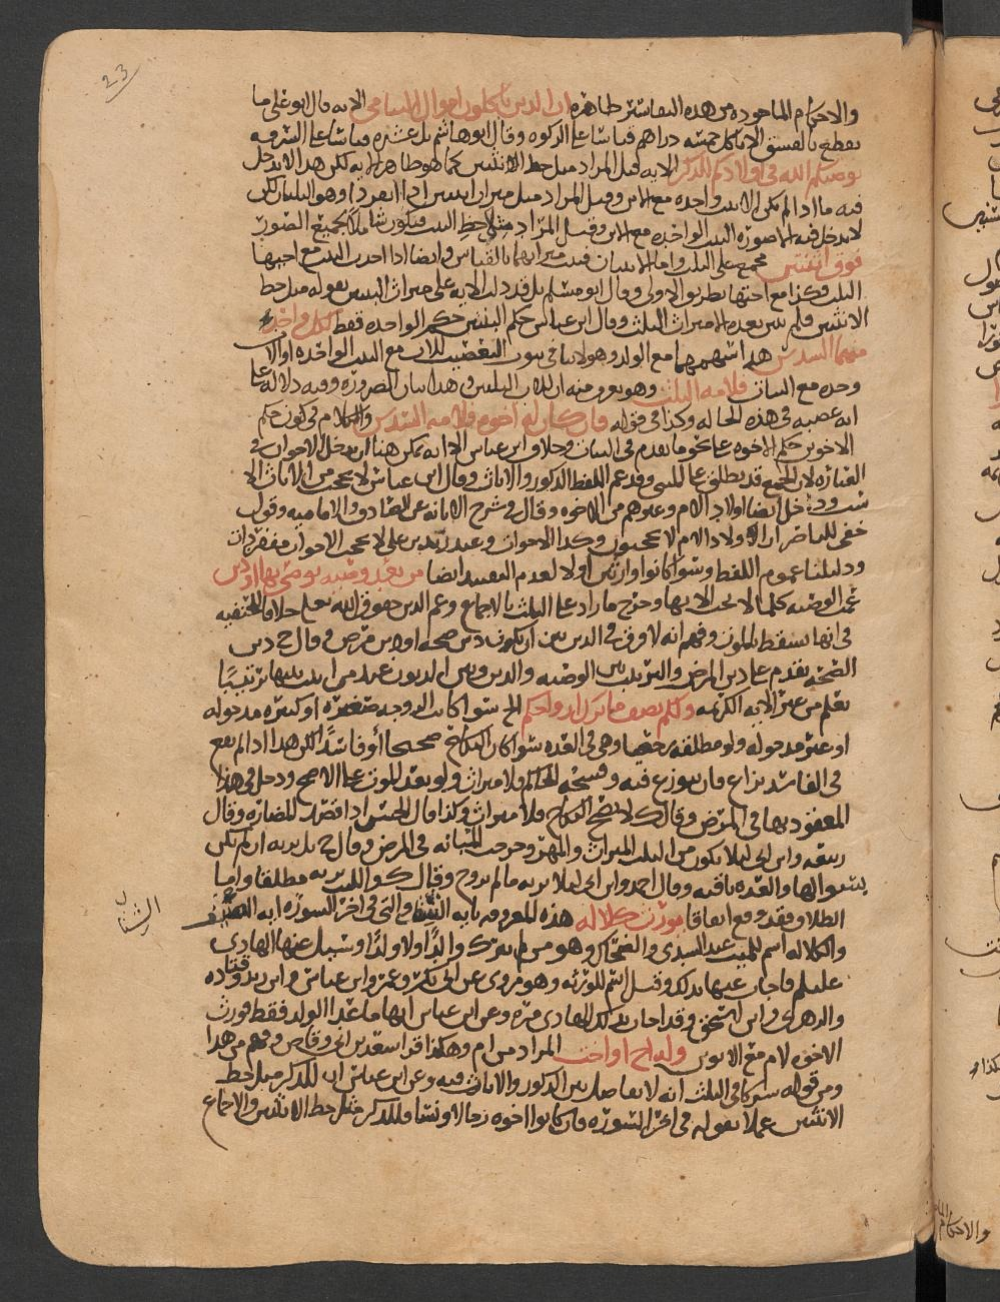 23
والاحكام الماخوذه من هذه التفاسير ظاهره ان الذين ياكلون اموال اليتامى الايه قال ابو علي ما
يقطع بالفسق الا مال خمسه دراهم قياسا على الزكوه وقال ابو هاشم بل عشره قياسا على السرقه
يوصيكم الله في اولادكم للذكر الايه قيل المراد مثل حظ الانثيين كما هو ظاهر الايه لكن هذا لا يدخل
فيه ما اذا لم يكن الا بنت واحده مع الابن وقيل المراد مثل ميراث ابنتين اذا انفردتا وهو الثلثان لكن
لا يدخل فيه الا صوره البنت الواحده مع الابن وقيل المراد مثلي حظ البنت فيكون شاملا لجميع الصور
فوق اثنتين مجمع على الثلثين واما الابنتان فميراثهما بالقياس وايضا اذا اخذت البنت مع اخيها
الثلث فكذا مع اختها بطريق الاولى وقال ابو مسلم بل قد دلت الايه على ميراث البنتين بقوله مثل حظ
الانثيين فلم يبين بعده الا ميراث الثلث وقال ابن عباس حكم البنتين حكم الواحده فقط لكل واحد
منهما السدس هذا سهمهما مع الولد وهو لا ينافي ثبوت التعصيب للاب مع البنت الواحده او الاب
وحده مع البنات فلامه الثلث وهو يعرف منه ان للاب الثلثين وهذا بيان الضروره وفيه دلاله على
انه عصبه في هذه الحاله وكذا في قوله فان كان له اخوه فلامه السدس والكلام في كون حكم
الاخوين حكم الاخوه على نحو ما تقدم في البنات وخلاف ابن عباس الا انه يمكن هنا ان يدخل الاخوان في
العباره لان الجمع قد يطلق على المثنى وقد عم اللفظ الذكور والاناث وقال ابن عباس لا يحجب من الاناث الا
ودخل ايضا اولاد الام وغيرهم من الاخوه وقال في شرح الابانه عن الصادق والاماميه وقول
خفي للناصر ان الاولاد الام لا يحجبون وكذا الاخوات وعند زيد بن علي لا يحجب الاخوات منفردات
ودليلنا عموم اللفظ وسوا كانوا وارثين او لا لعدم التقييد ايضا من بعد وصيه يوصى بها او دين
عمت الوصيه كلما لا يحب الايصا وخرج ما زاد على الثلث بالاجماع وعم الدين حقوق الله تعلى خلافا للحنفيه
في انها تسقط بالموت وفهم انه لا فرق في الدين بين ان يكون دين صحه او دين مرض وقال ح دين
الصحه يقدم على دين المرض والترتيب بين الوصيه والدين وبين الديون عند من اثبت بينها ترتيبا
يعلم من غير الايه الكريمه ولكم نصف ما ترك ازواجكم الخ سوا كانت الزوجه صغيره او كبيره مدخوله
او غير مدخوله ولو مطلقه رجعيا وهي في العده سوا كان النكاح صحيحا او فاسدا لكن هذا اذا لم يقع
في الفاسد نزاع فان تنوزع فيه وفسخه الحاكم فلا ميراث ولو بعد الموت على الاصح ودخل في هذا
المعقود بها في المرض وقال ك لا يصح النكاح فلا ميراث وكذا قال الحسن اذا قصد المضاره وقال
ربيعه وابن ابي ليلا يكون من الثلث الميراث والمهر وخرجت المبانه في المرض وقال ح بل يرثه ان لم تكن
بسوالها والعده باقيه وقال احمد وابن ابي ليلا يرثه ما لم تزوج وقال ك والليث يرثه مطلقا واما
الطلاق فقد وقع اتفاقا يورث كلاله هذه المعروفه بايه الشتا والتي في اخر السوره ايه الصيف
الشتاء
والكلاله اسم للميت عند السدي والضحاك وهو من لم يترك والدا ولا ولدا وسيل عنها الهادي
عليلم فاجاب عنها بذلك وقيل اسم للورثه وهو مروي عن ابي بكر وعمر وابن عباس وابن زيد وقتاده
والزهري وابن اسحق وقد اجاب بذلك الهادي مره وعن ابن عباس انها ما عدا الولد فقط فورث
الاخوه لام مع الابوين وله اخ او اخت المراد من ام وهكذا قرا سعد بن ابي وقاص وفهم من هذا
ومن قوله شركا في الثلث انه لا تفاضل بين الذكور والاناث فيه وعن ابن عباس ان للذكر مثل حظ
الانثيين عملا بقوله في اخر السوره فان كانوا اخوه رجالا ونسا فللذكر مثل حظ الانثيين والاجماع
والاحكام